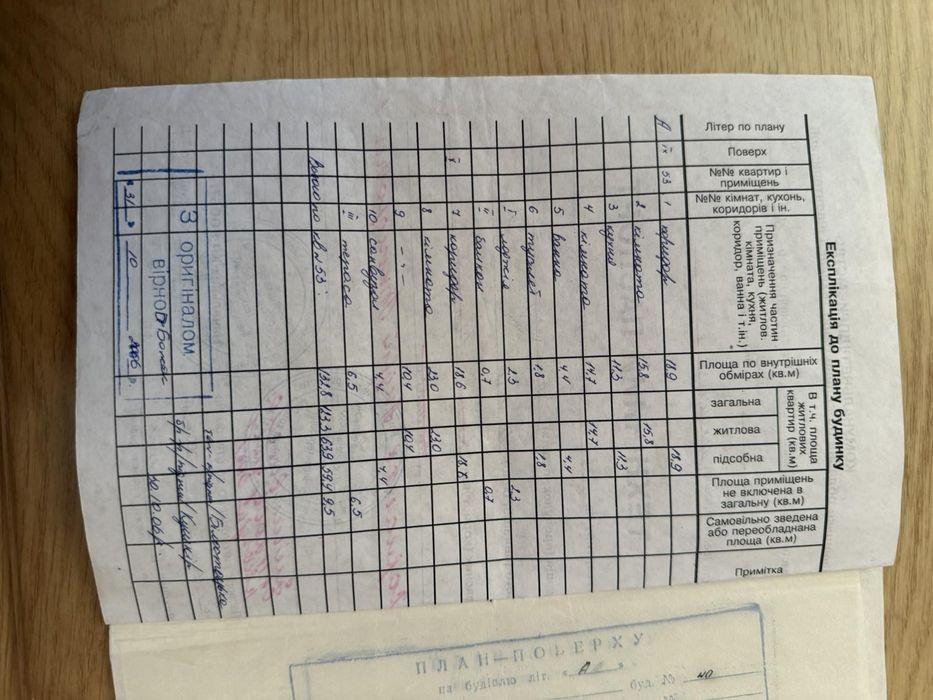 Експлікація до плану будинку
Літер по плану
Поверх
№№ квартир і приміщень
№№ кімнат, кухонь, коридорів і ін.
Призначення частин приміщень (житлов. кімната, кухня, коридор, ванна і т.ін.)
Площа по внутрішніх обмірах (кв.м)
В т.ч. площа житлових квартир (кв.м)
загальна
житлова
підсобна
Площа приміщень не включена в загальну (кв.м)
Самовільно зведена або переобладнана площа (кв.м)
Примітка
А ІХ 53 1 коридор 18.9 18.9
2 кімната 15.8 15.8
3 кухня 11.3 11.3
4 кімната 14.7 14.7
5 ванна 4.4 4.4
6 туалет 1.8 1.8
І лоджія 1.3 1.3
ІІ балкон 0.7 0.7
7 коридор 18.6 18.6
8 кімната 13.0 13.0
9 -"- 10.4 10.4
10 санвузол 4.4 4.4
ІІІ тераса 6.5 6.5
по кв N 53: 131.8 63.9 9.5
З оригіналом
вірно
"31" 10
ПЛАН—ПОВЕРХУ
на будівлю літ. "А"
буд. №